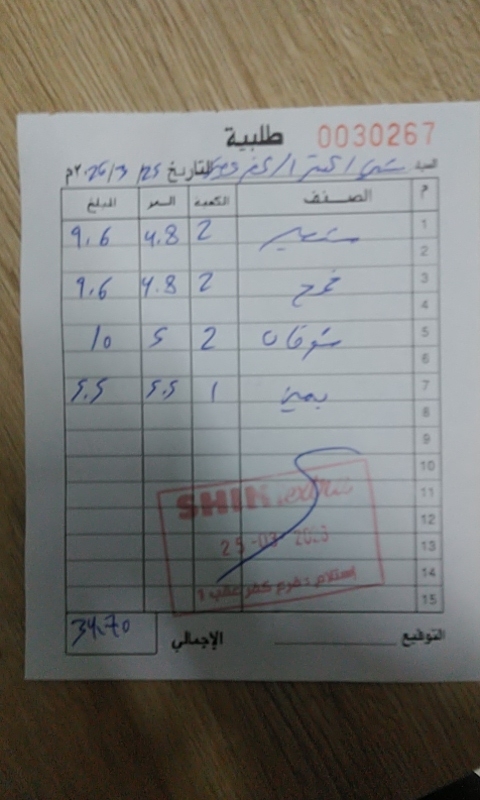 طلبية 0030267
السيد التاريخ 25/3/2026م
م الصنف الكمية السعر المبلغ
1 شعير 2 4.8 9.6
2
3 قمح 2 4.8 9.6
4
5 شوفان 2 5 10
6
7 1 5.5 5.5
8
9
10
11 SHINI extra
12
13 25-03-
14 إستلام : فرع كفر عقب 1
15
التوقيع الإجمالي 34.70